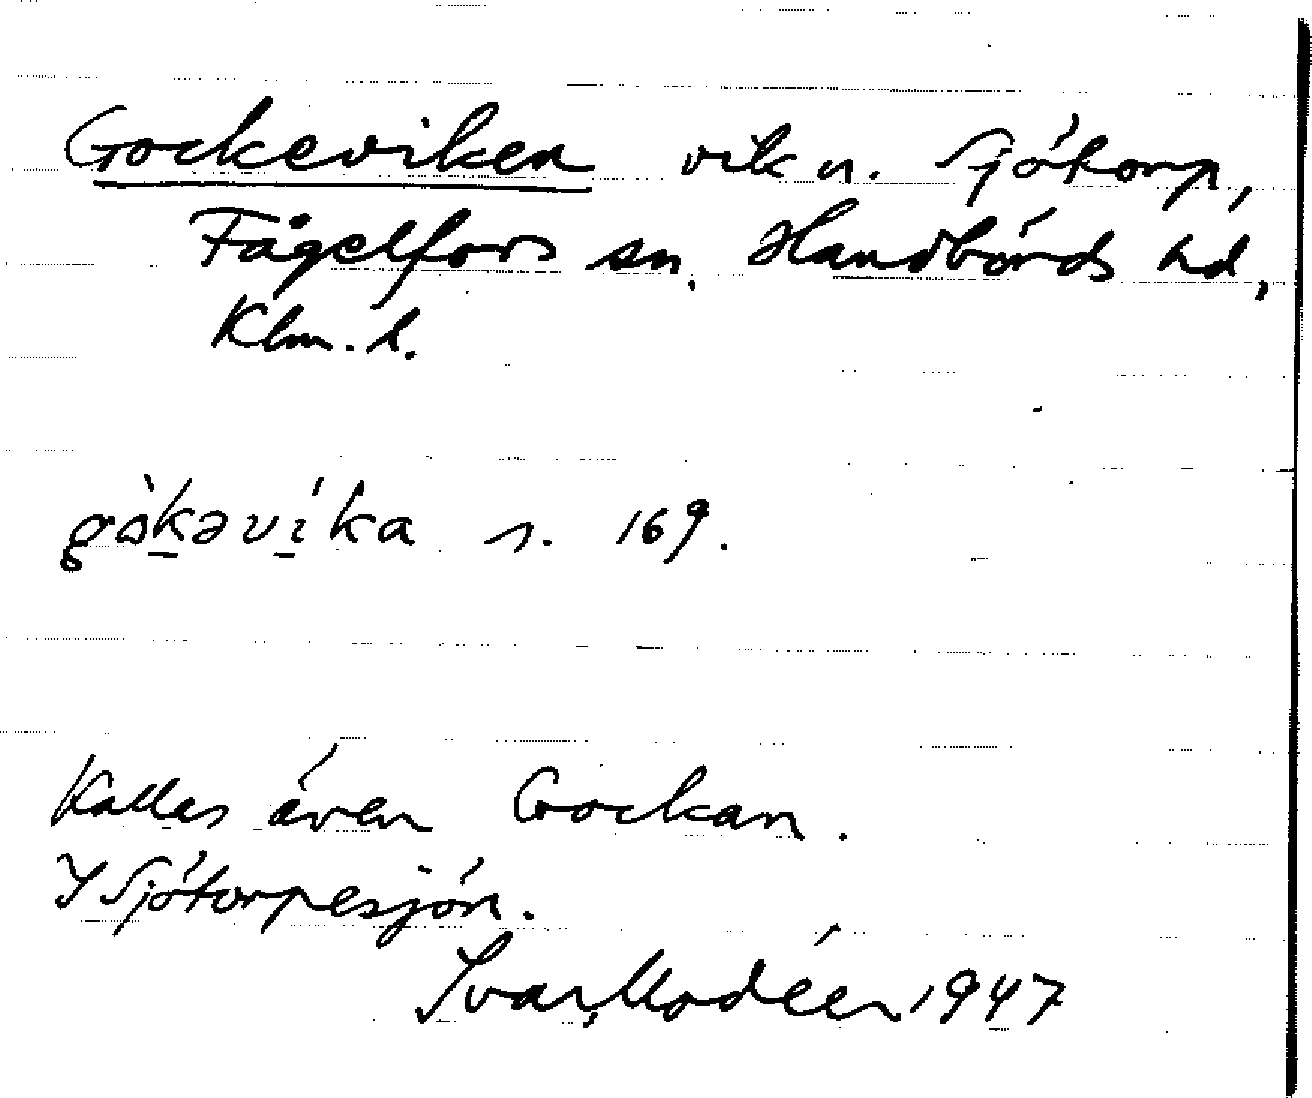 Gockeviken vik n. Sjötorp,
Fågelfors sn, Handbörds hd,
Klm. l.
gòk̲əví̲ka s. 169.
Kallas även Gockan.
I Sjötorpesjön.
Ivar Modéer 1947